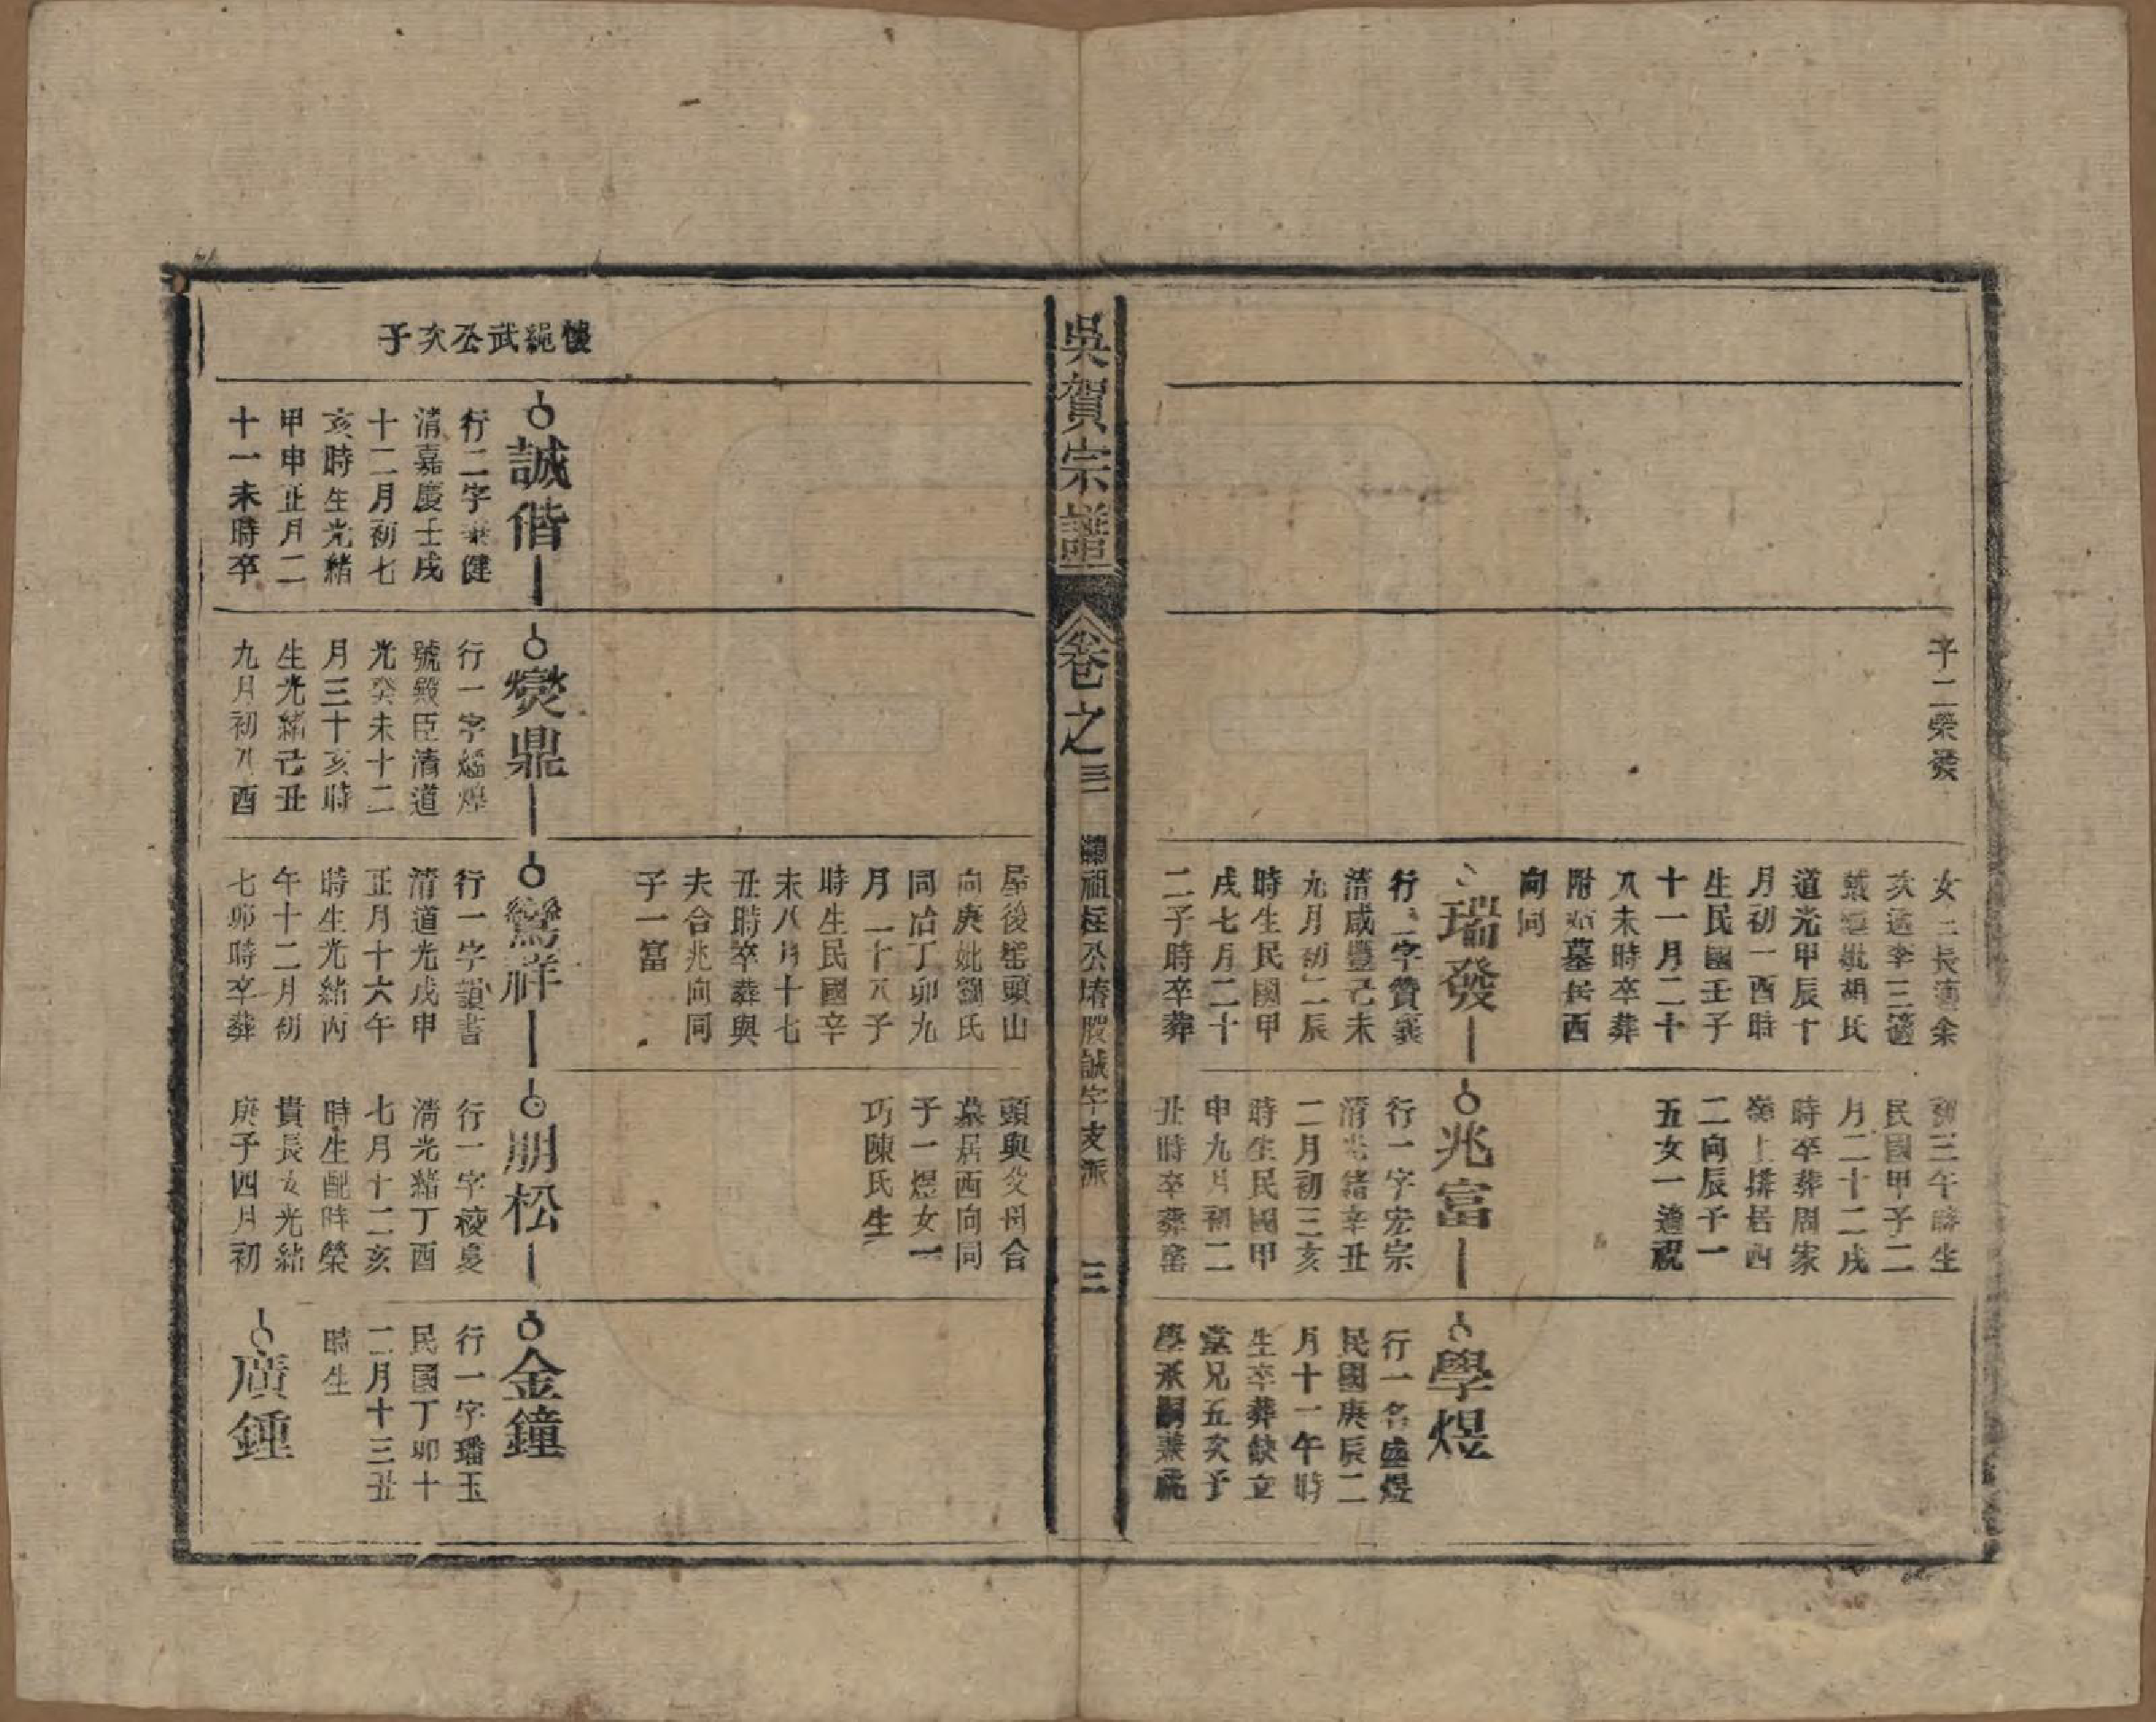 子二榮發
女三長適余
次適李三適
戴繼妣胡氏
道光甲辰十
月初一酉時
生民國壬子
十一月二十
八未時卒葬
附 墓長酉
向同
瑞發
行二字贊襄
清咸豐己未
九月初二辰
時生民國甲
戌七月二十
二子時卒葬
初三午時生
民國甲子二
月二十二戌
時卒葬周家
嶺上 居西
二向辰子一
五女一適祝
兆富
行一字宏宗
清光緒辛丑
二月初三亥
時生民國甲
申九月初二
丑時卒葬窰
學煜
行一名盛煜
民國庚辰二
月十一午時
生卒葬缺立
堂兄五次子
學 承嗣兼祧
吳賀宗譜
卷之三
瀨祖 公堵股誠字支派
三
屋後窰頭山
向庚妣劉氏
同治丁卯九
月二十八子
時生民國辛
未八月十七
丑時卒葬與
夫合兆向同
子一富
頭與父母合
墓居酉向同
子一煜女一
巧陳氏生
懷繩武公次子
誠偕
行二字 健
清嘉慶壬戌
十二月初七
亥時生光緒
甲申正月二
十一未時卒
爕鼎
行一字 煌
號殿臣清道
光癸未十二
月三十亥時
生光緒己丑
九月初八酉
鸞祥
行一字韻書
清道光戊申
正月十六午
時生光緒丙
午十二月初
七卯時卒葬
朋松
行一字稜夏
清光緒丁酉
七月十二亥
時生配 榮
貴長女光緒
庚子四月初
金鐘
行一字璠玉
民國丁卯十
二月十三丑
時生
廣鍾